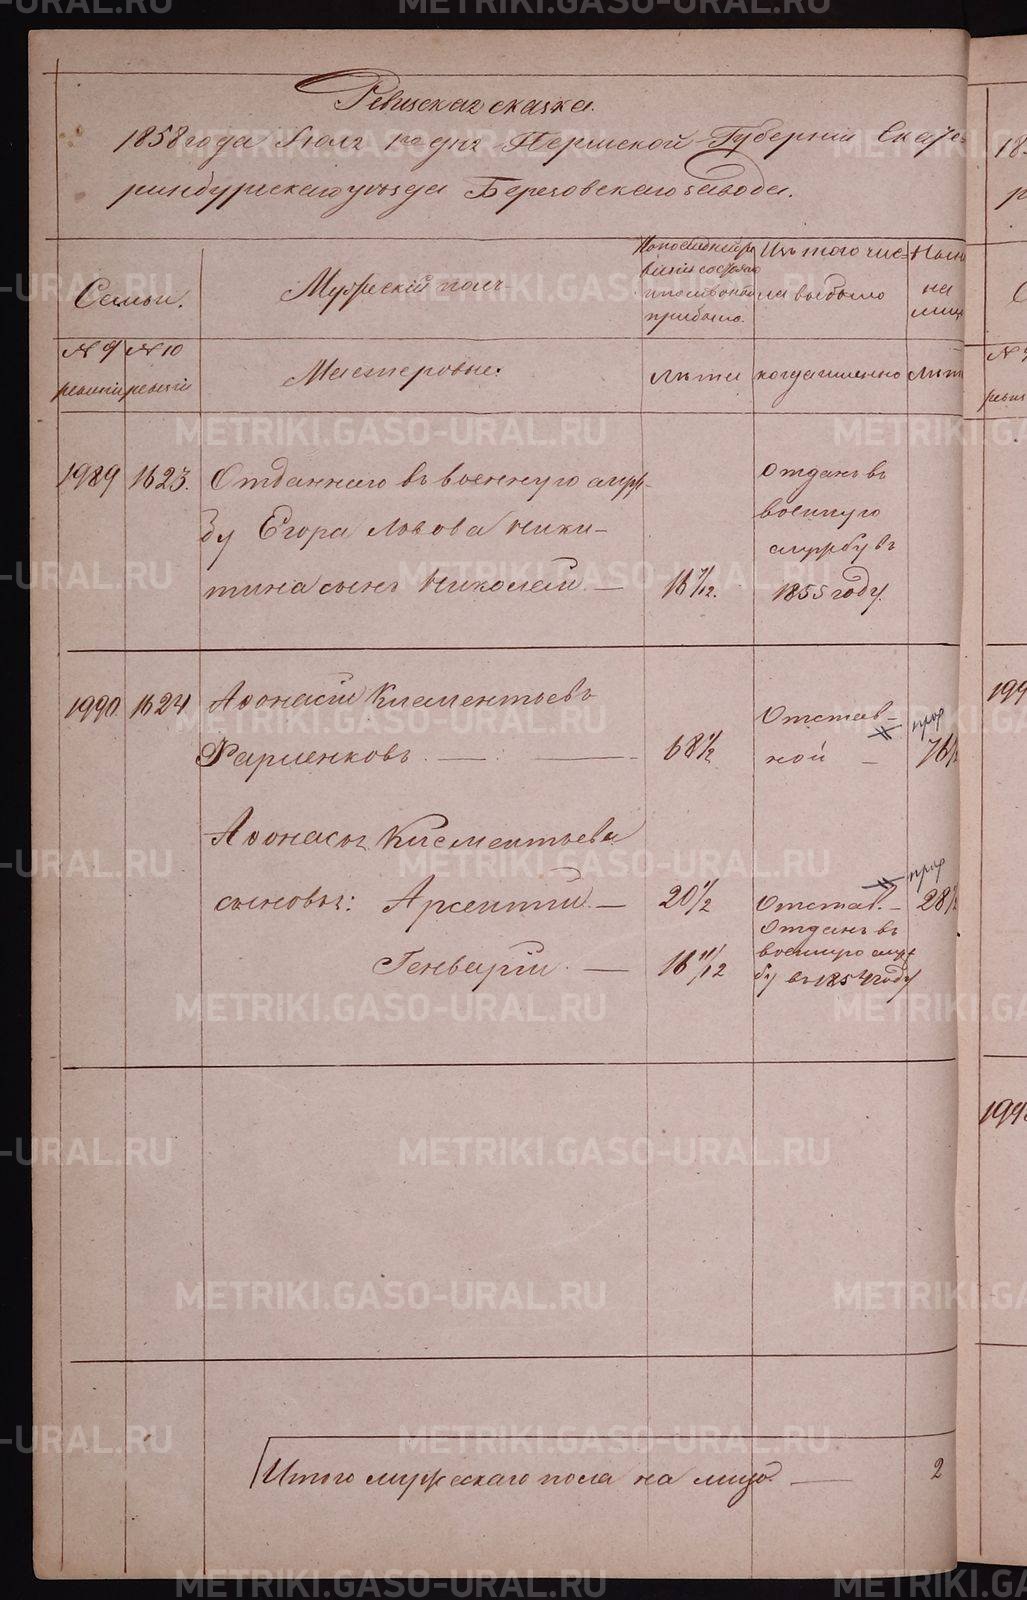 Ревизская сказка.
1858 года Июля 1го дня Пермской Губернии Екате-
ринбургскаго уѣзда Березовскаго завода.
Семьи.
Мужескій полъ
По последней ре-
визіи состояло
и после оной
прибыло.
Изъ того чис-
ла выбыло
Ныне
на
лицо
№ 9 ревизіи
№ 10 ревизіи
Мастеровые:
Лѣта
когда именно
Лѣта
1989 1623. Отданнаго въ военную служ-
бу Егора Львова Ники-
тина сынъ Николай — 16 7/12.
Отданъ въ
военную
службу въ
1855 году.
1990 1624 Афонасій Клементьевъ
Фарленковъ. — 68 1/2
Отстав-
ной —
76 1/2
Афонасья Клементьева
сыновья: Арсентій. — 20 1/2 Отстав. — 28 1/2
Генварій. — 16 11/12
Отданъ въ
военную служ-
бу въ 1854 году
Итого мужескаго пола на лицо. — 2
METRIKI.GASO-URAL.RU